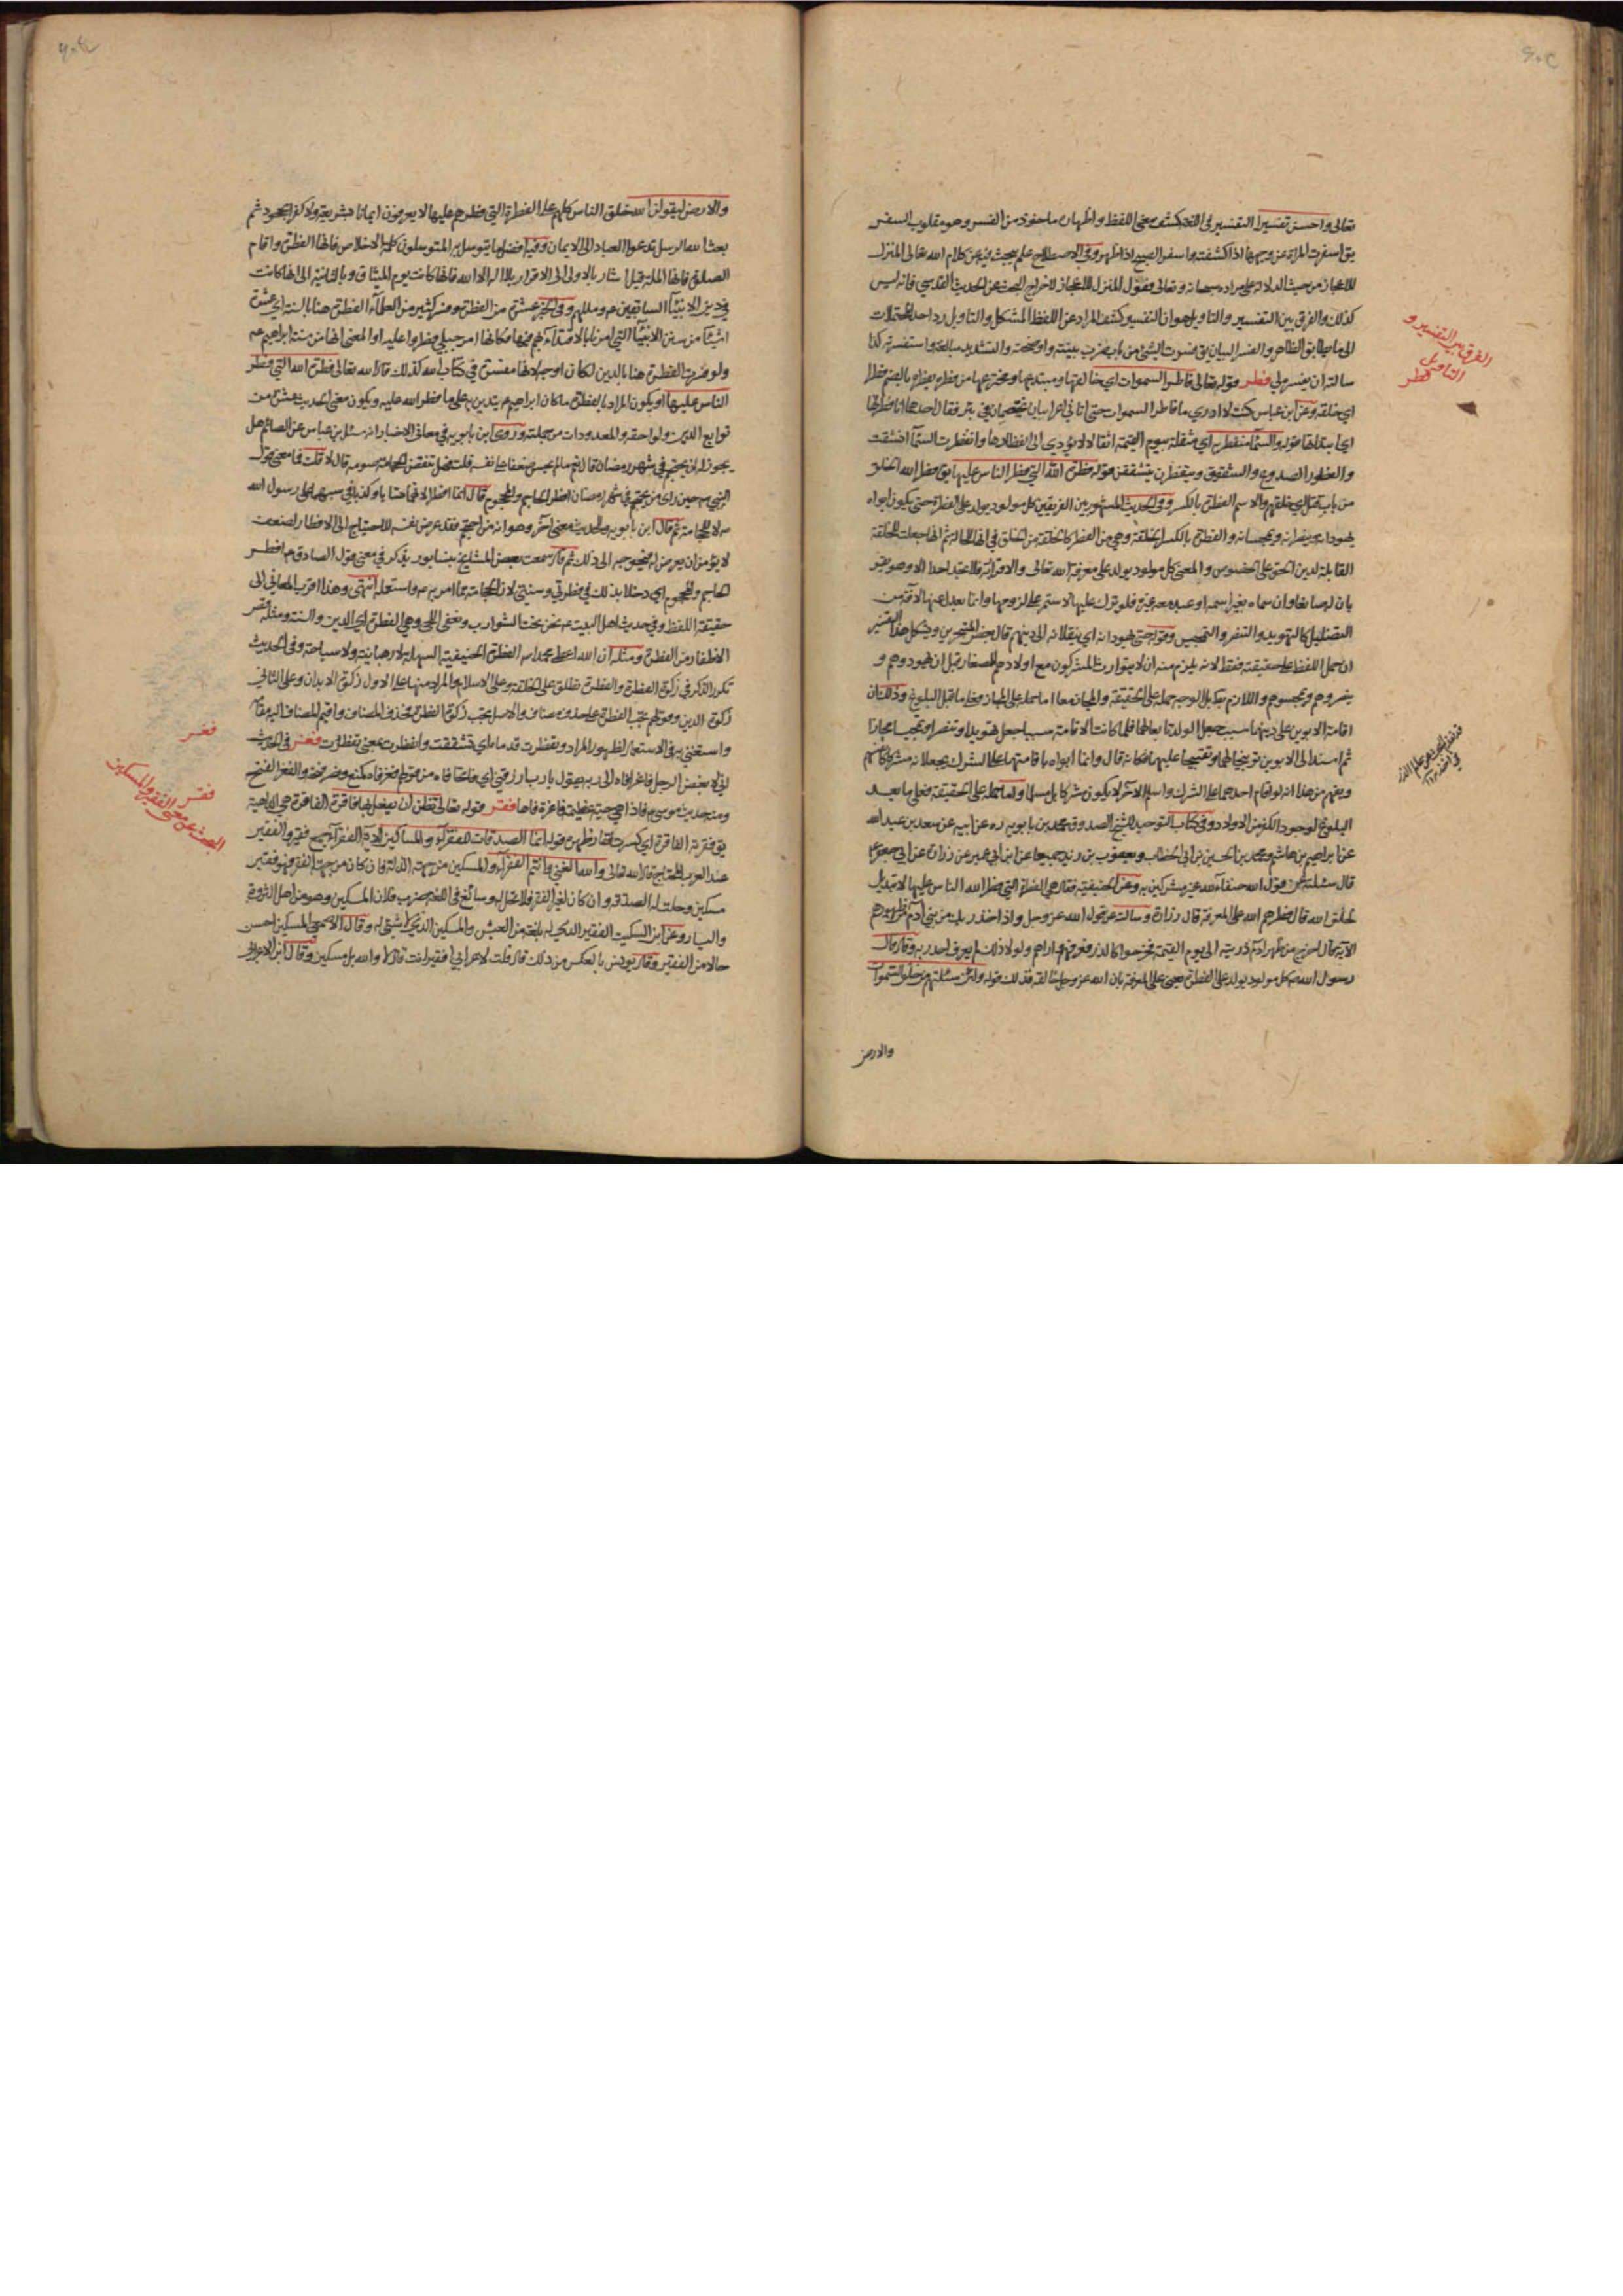 تعالى واحسن تفسيرا التفسير في اللغة كشف معنى اللفظ واظهاره ماخوذ من الفسر وهو مقلوب السفر
يق اسفرت المراة عن وجهها اذا كشفته واسفر الصبح اذا ظهر وفي الاصطلاح علم يبحث فيه عن كلام الله تعالى المنزل
للاعجاز من حيث الدلالة على مراده سبحانه وتعالى فقوله المنزل للاعجاز لاخراج البحث عن الحديث القدسي فانه ليس
كذلك والفرق بين التفسير والتاويل هو ان التفسير كشف المراد عن اللفظ المشكل والتاويل رد احد المحتملات
الى ما يطابق الظاهر والفسر البيان يق فسرت الشئ من باب ضرب بينته واوضحته والتشديد مبالغة واستفسرته كذا
سالته ان يفسره لي فطر قوله تعالى فاطر السموات اي خالقها ومبتدعها ومخترعها من فطره يفطره بالضم فطرا
اي خلقه وعن ابن عباس كنت لا ادري ما فاطر السموات حتى اتاني اعرابيان يختصمان في بئر فقال احدهما انا فطرتها
اي ابتداتها قوله والسماء منفطر به اي مثقلة بيوم القيمة اثقالا يؤدي الى انفطارها وانفطرت السماء انشقت
والفطور الصدوع والشقوق ويتفطرن يتشققن قوله فطرة الله التي فطر الناس عليها يق فطر الله الخلق
من باب قتل اي خلقهم والاسم الفطرة بالكسر وفي الحديث المشهور بين الفريقين كل مولود يولد على الفطرة حتى يكون ابواه
يهودانه وينصرانه ويمجسانه والفطرة بالكسر الخلقة وهي من الفطر كالخلقة من الخلق في انها للحالة ثم انها جعلت للخلقة
القابلة لدين الحق على الخصوص والمعنى كل مولود يولد على معرفة الله تعالى والاقرار به فلا تجد احدا الا وهو يقر
بان له صانعا وان سماه بغير اسمه او عبد معه غيره فلو ترك عليها لاستمر على لزومها وانما يعدل عنها لافة من
التضليل كالتهويد والتنصر والتمجيس وقوله حتى يهودانه اي ينقلانه الى دينهم قال بعض المتبحرين ويشكل هذا التفسير
ان حمل اللفظ على حقيقته فقط لانه يلزم منه ان لا يتوارث المشركون مع اولادهم الصغار قبل ان يهودوهم و
ينصروهم ويمجسوهم واللازم بط بل الوجه حمله على الحقيقة والمجاز معا اما حمله على المجاز فعلى ما قبل البلوغ وذلك ان
اقامة الابوين على دينهما سبب جعل الولد تابعا لهما فلما كانت الاقامة سببا جعل تهويدا وتنصرا وتمجيسا مجازا
ثم اسند الى الابوين توبيخا لهما وتقبيحا عليهما فكانه قال وانما ابواه باقامتهما على الشرك يجعلانه مشركا
ويفهم من هذا انه لو اقام احدهما على الشرك واسلم الاخر لا يكون مشركا بل مسلما واما حمله على الحقيقة فعلى ما بعد
البلوغ لوجود الكفر من الاولاد وفي كتاب التوحيد للشيخ الصدوق محمد بن بابويه ره عن ابيه عن سعد بن عبد الله
عن ابراهيم بن هاشم ومحمد بن الحسين بن ابي الخطاب ويعقوب بن يزيد جميعا عن ابن ابي عمير عن زرارة عن ابي جعفر ع
قال سئلته عن قول الله حنفاء لله غير مشركين به وعن الحنيفية فقال هي الفطرة التي فطر الله الناس عليها لا تبديل
لخلق الله قال فطرهم الله على المعرفة قال زرارة وسالته عن قول الله عز وجل واذ اخذ ربك من بني ادم من ظهورهم
الاية قال اخرج من ظهر ادم ذريته الى يوم القيمة فخرجوا كالذر فعرفهم واراهم ولولا ذلك لم يعرف احد ربه وقال قال
رسول الله ص كل مولود يولد على الفطرة يعني على المعرفة بان الله عز وجل خالقه فذلك قوله ولئن سئلتهم من خلق السموات
والارض
الفرق بين التفسير و
التاويل
فطر
والارض ليقولن الله خلق الناس كلهم على الفطرة التي فطرهم عليها لا يعرفون ايمانا بشريعة ولا كفرا بجحود ثم
بعث الله الرسل تدعوا العباد الى الايمان وفيه افضل ما يتوسل به المتوسلون كلمة الاخلاص فانها الفطرة واقام
الصلوة فانها الملة قيل اشار بالاولى الى الاقرار بلا اله الا الله فانها كانت يوم الميثاق وبالثانية الى انها كانت
في دين الانبيآ السابقين ع وملهم وفي الخبر عشرة من الفطرة وفسر كثير من العلماء الفطرة هنا بالسنة اي عشرة
اشيآ من سنن الانبيآ التي امرنا بالاقتداء بهم فيها فكانها امر جبلي فطروا عليه او المعنى انها من سنة ابراهيم ع
ولو فسرت الفطرة هنا بالدين لكان اوجه لانها مفسرة في كتاب الله كذلك قال الله تعالى فطرة الله التي فطر
الناس عليها او يكون المراد بالفطرة ما كان ابراهيم ع يتدين به على ما فطر الله عليه ويكون معنى الحديث عشرة من
توابع الدين ولواحقه والمعدودات من جملته وروى ابن بابويه في معاني الاخبار انه سئل ابن عباس عن الصائم هل
يجوز له ان يحتجم في شهر رمضان قال نعم ما لم يخش ضعفا على نفسه قلت فهل تنقض الحجامة صومه قال لا قلت فما معنى قول
النبي ص حين راى من يحتجم في شهر رمضان افطر الحاجم والمحجوم قال انما افطرا لانهما تسابا وكذبا في سبهما على رسول الله
ص لا للحجامة ثم قال ابن بابويه وللحديث معنى اخر وهو انه من احتجم فقد عرض نفسه للاحتياج الى الافطار لضعف
لا يؤمن ان يعرض له فيحوجه الى ذلك ثم قال سمعت بعض المشايخ بنيسابور يذكر في معنى قول الصادق ع افطر
الحاجم والمحجوم اي دخلا بذلك في فطرتي وسنتي لان الحجامة مما امر به ع واستعمله انتهى وهذا اقرب المعاني الى
حقيقة اللفظ وفي حديث اهل البيت ع نحن نحف الشوارب ونعفي اللحى وهي الفطرة اي الدين والسنة ومثله قص
الاظفار من الفطرة ومثله ان الله اعطى محمدا ص الفطرة الحنيفية السهلة لا رهبانية ولا سياحة وفي الحديث
تكرر الذكر في زكوة الفطرة والفطرة تطلق على الخلقة وعلى الاسلام والمراد منها على الاول زكوة الابدان وعلى الثاني
زكوة الدين وقولهم تجب الفطرة على حذف مضاف والاصل تجب زكوة الفطرة فحذف المضاف واقيم المضاف اليه مقامه
واستغنى به في الاستعمال لظهور المراد وتفطرت قدماه اي تشققت وانفطرت بمعنى تفطرت فغر في الحديث
اني لابغض الرجل فاغرا فاه الى ربه يقول يا رب ارزقني اي فاتحا فاه من قولهم فغر فاه كمنع ونصر فتحه والفغر الفتح
ومنه حديث موسى ع فاذا هي حية عظيمة فاغرة فاها فقر قوله تعالى تظن ان يفعل بها فاقرة الفاقرة هي الداهية
يق فقرته الفاقرة اي كسرت فقار ظهره قوله انما الصدقات للفقرآء والمساكين الاية الفقرآء جمع فقير والفقير
عند العرب المحتاج قال الله تعالى والله الغني وانتم الفقرآء والمسكين من جهة الذلة فان كان من جهة الفقر فهو فقير
مسكين وحلت له الصدقة وان كان لغير الفقر فلا تحل له وسائغ في اللغة ضرب فلان المسكين وهو من اهل الثروة
واليسار وعن ابن السكيت الفقير الذي له بلغة من العيش والمسكين الذي لا شئ له وقال الاصمعي المسكين احسن
حالا من الفقير وقال يونس بالعكس من ذلك قال قلت لاعرابي افقير انت قال لا والله بل مسكين وقال ابن الاعرابي
فغر
فقر
البحث عن معنى الفقير والمسكين